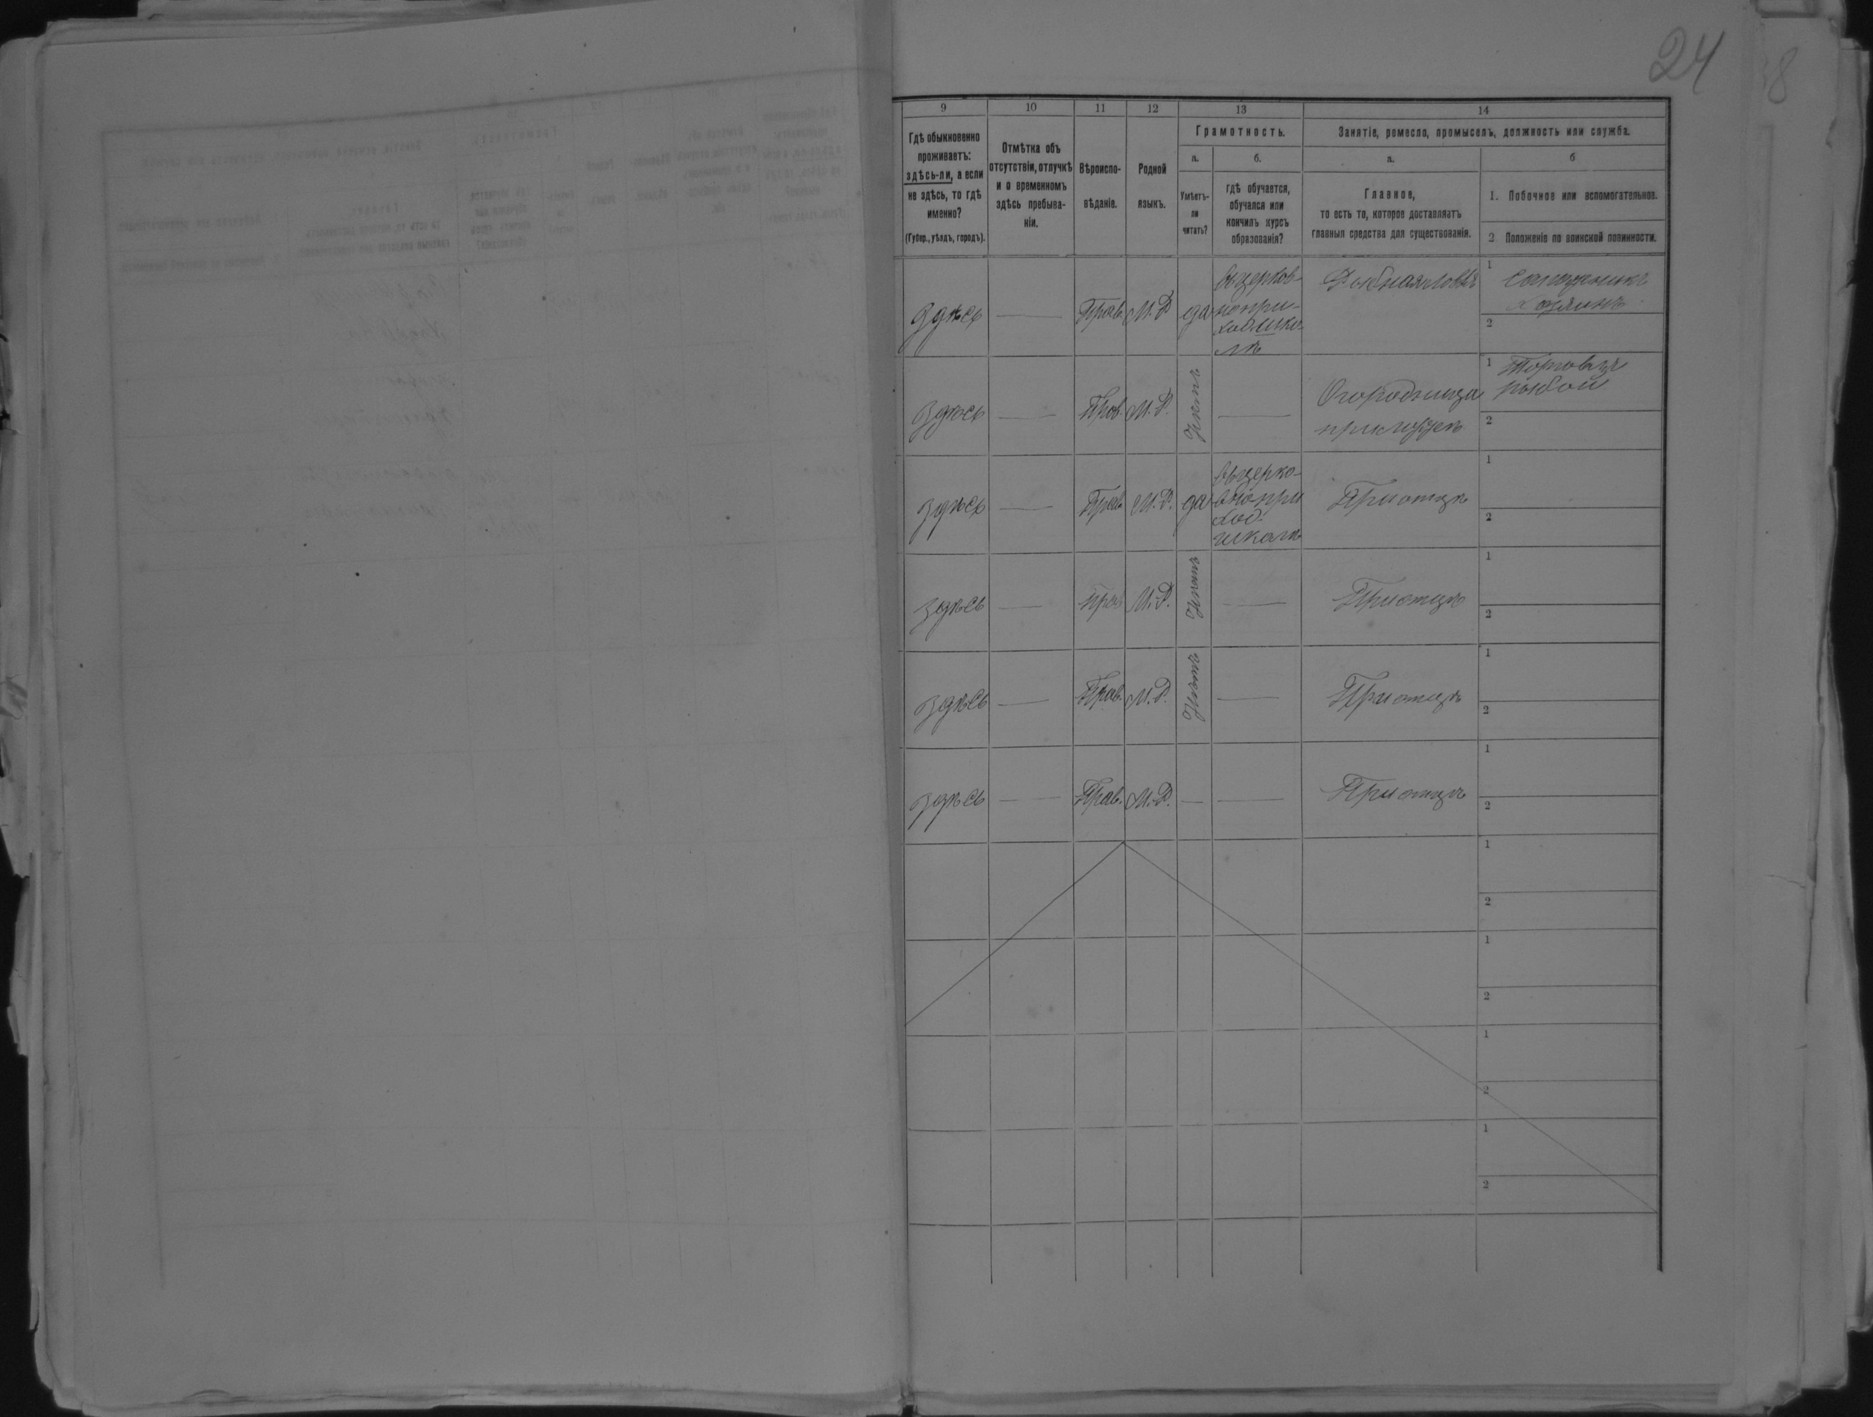 24
9
10
11
12
13
14
Гдѣ обыкновенно
проживаетъ:
здѣсь-ли, а если
не здѣсь, то гдѣ
именно?
(Губер., уѣздъ, городъ).
Отмѣтка объ
отсутствіи, отлучкѣ
и о временномъ
здѣсь пребыва-
ніи.
Вѣроиспо-
вѣданіе.
Родной
языкъ.
Грамотность.
а.
б.
Умѣетъ-
ли
читать?
гдѣ обучается,
обучался или
кончилъ курсъ
образованія?
Занятіе, ремесло, промыселъ, должность или служба.
а.
б
Главное,
то есть то, которое доставляетъ
главныя средства для существованія.
1. Побочное или вспомогательное.
2 Положеніе по воинской повинности.
Здѣсь
Прав.
М. Р.
да
Въ церков-
но при-
ход. шко-
лѣ
1
Сапожникъ
хозяинъ
2
здѣсь
Прав.
М. Р.
Нѣтъ
Огородница
при мужѣ
1 Торговля
рыбой
2
здѣсь
Прав.
М. Р.
да
Въ церко-
вно при
ход.
школѣ
При отцѣ
1
2
здѣсь
Прав
М. Р.
Нѣтъ
При отцѣ
1
2
здѣсь
Прав.
М. Р.
Нѣтъ
При отцѣ
1
2
здѣсь
Прав.
М. Р.
При отцѣ
1
2
1
2
1
2
1
2
1
2